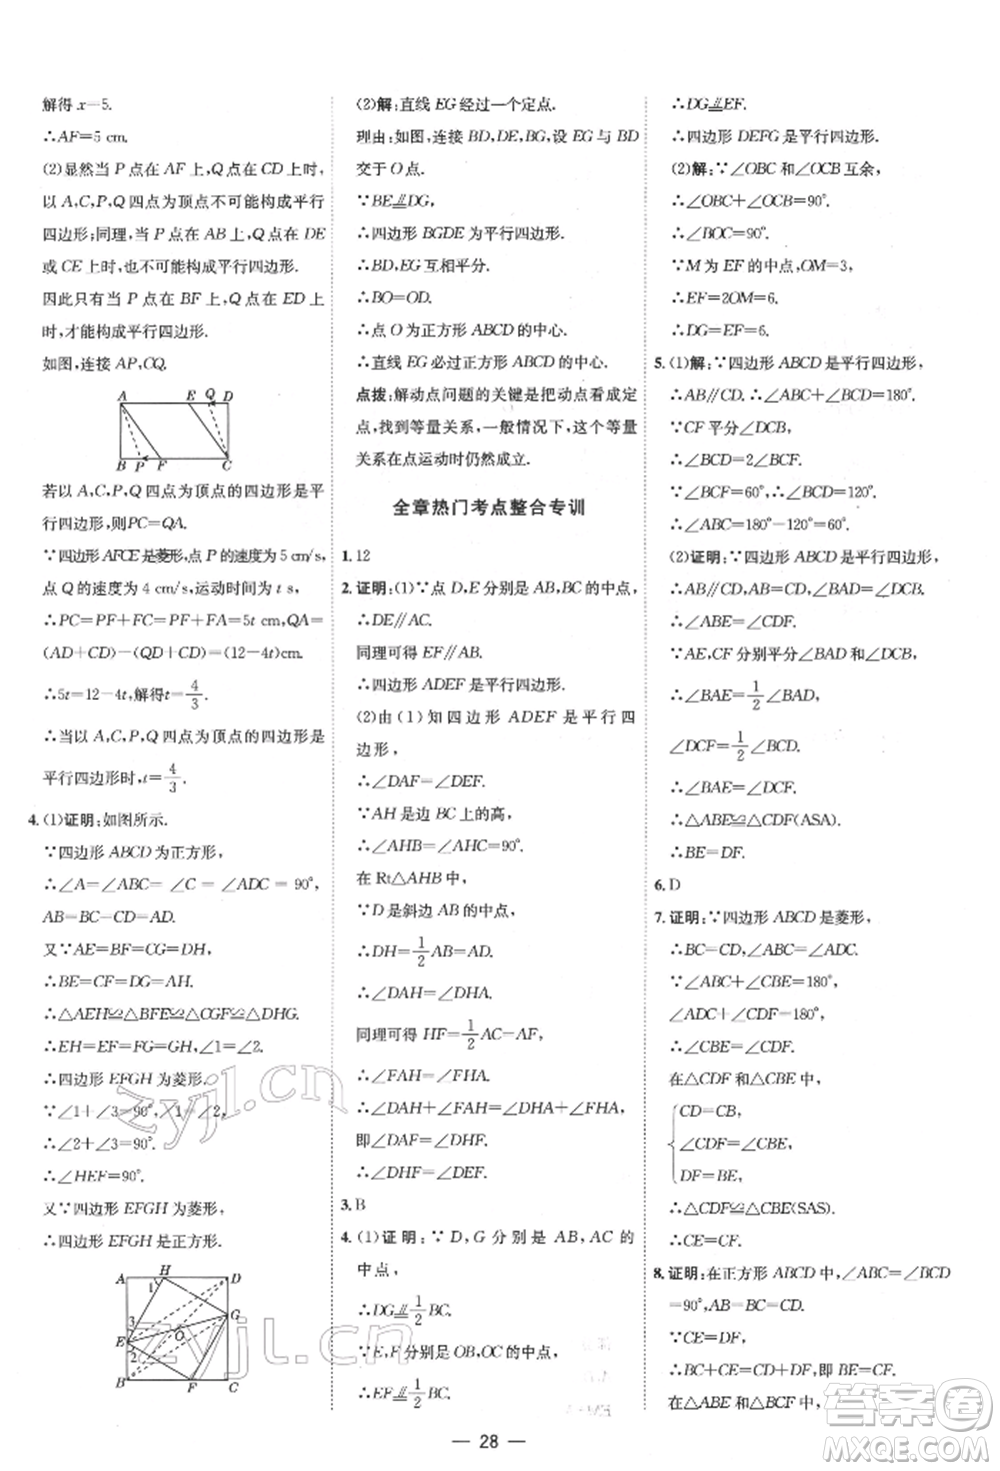 解得 x=5.
∴AF=5 cm.
(2)显然当 P 点在 AF 上时,Q 点在 CD 上时,
以 A,C,P,Q 四点为顶点不可能构成平行
四边形;同理,当 P 点在 AB 上,Q 点在 DE
或 CE 上时,也不可能构成平行四边形.
因此只有当 P 点在 BF 上,Q 点在 ED 上时,
才能构成平行四边形.
如图,连接 AP,CQ.
A E Q D
B P F C
若以 A,C,P,Q 为顶点的四边形是平
行四边形,则PC=QA.
∵四边形 AFCE 是菱形,点 P 的速度为 5 cm/s,
点 Q 的速度为 4 cm/s,运动时间为 t s,
∴PC=PF+FC=PF+FA=5t cm,QA=
(AD+CD)-(QD+CD)=(12-4t)cm.
∴5t=12-4t,解得t=4/3.
∴当以 A,C,P,Q 四点为顶点的四边形是
平行四边形时,t=4/3.
4.(1)证明:如图所示.
∵四边形 ABCD 为正方形,
∴∠A=∠ABC=∠C=∠ADC=90°,
AB=BC=CD=AD.
又∵AE=BF=CG=DH,
∴BE=CF=DG=AH.
∴△AEH≌△BFE≌△CGF≌△DHG.
∴EH=EF=FG=GH,∠1=∠2.
∴四边形 EFGH 为菱形.
∵∠1+∠3=90°,∠1=∠2,
∴∠2+∠3=90°.
∴∠HEF=90°.
又∵四边形 EFGH 为菱形,
∴四边形 EFGH 是正方形.
A H D
1
G
3 O
E
2
B F C
(2)解:直线 EG 经过一个定点.
理由:如图,连接 BD,DE,BG,设 EG 与 BD
交于 O 点.
∵BE∥=DG,
∴四边形 BGDE 为平行四边形.
∴BD,EG 互相平分.
∴BO=OD.
∴点 O 为正方形 ABCD 的中心.
∴直线 EG 必过正方形 ABCD 的中心.
点拨:解动点问题的关键是把动点看成定
点,找到等量关系,一般情况下,这个等量
关系在点运动时仍然成立.
全章热门考点整合专训
1.12
2.证明:(1)∵点 D,E 分别是 AB,BC 的中点,
∴DE∥AC.
同理可得 EF∥AB.
∴四边形 ADEF 是平行四边形.
(2)由(1)知四边形 ADEF 是平行四
边形,
∴∠DAF=∠DEF.
∵AH 是边 BC 上的高,
∴∠AHB=∠AHC=90°.
在 Rt△AHB 中,
∵D 是斜边 AB 的中点,
∴DH=1/2AB=AD.
∴∠DAH=∠DHA.
同理可得 HF=1/2AC=AF,
∴∠FAH=∠FHA.
∴∠DAH+∠FAH=∠DHA+∠FHA,
即∠DAF=∠DHF.
∴∠DHF=∠DEF.
3.B
4.(1)证明:∵D,G 分别是 AB,AC 的
中点,
∴DG∥=1/2BC.
∵E,F 分别是 OB,OC 的中点,
∴EF∥=1/2BC.
∴DG∥=EF.
∴四边形 DEFG 是平行四边形.
(2)解:∵∠OBC 和∠OCB 互余,
∴∠OBC+∠OCB=90°.
∴∠BOC=90°.
∵M 为 EF 的中点,OM=3,
∴EF=2OM=6.
∴DG=EF=6.
5.(1)解:∵四边形 ABCD 是平行四边形,
∴AB∥CD. ∴∠ABC+∠BCD=180°.
∵CF 平分∠DCB,
∴∠BCD=2∠BCF.
∵∠BCF=60°,∴∠BCD=120°.
∴∠ABC=180°-120°=60°.
(2)证明:∵四边形 ABCD 是平行四边形,
∴AB∥CD,AB=CD,∠BAD=∠BCD.
∴∠ABE=∠CDF.
∵AE,CF 分别平分∠BAD 和∠BCD,
∴∠BAE=1/2∠BAD,
∠DCF=1/2∠BCD.
∴∠BAE=∠DCF.
∴△ABE≌△CDF(ASA).
∴BE=DF.
6.D
7.证明:∵四边形 ABCD 是菱形,
∴BC=CD,∠ABC=∠ADC.
∵∠ABC+∠CBE=180°,
∠ADC+∠CDF=180°,
∴∠CBE=∠CDF.
在△CDF和△CBE 中,
CD=CB,
∠CDF=∠CBE,
DF=BE,
∴△CDF≌△CBE(SAS).
∴CE=CF.
8.证明:在正方形 ABCD 中,∠ABC=∠BCD
=90°,AB=BC=CD.
∵CE=DF,
∴BC+CE=CD+DF,即BE=CF.
在△ABE 和△BCF 中,
— 28 —
zyjl.cn
zyjl.cn
答案圈
MXQE.COM